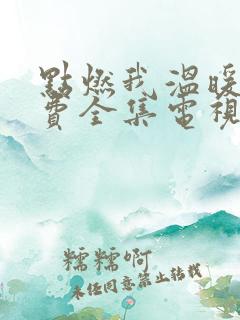 點燃我溫暖
費全集電視
糯糯啊
未经同意禁止转载